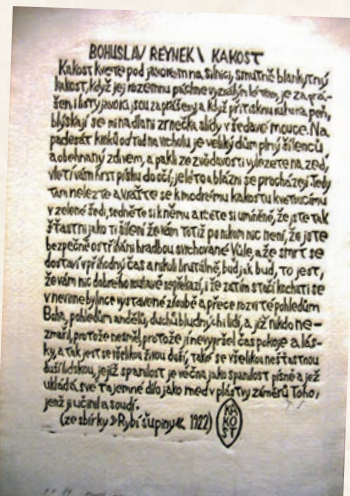 BOHUSLAV REYNEK \ KAKOST
Kakost kvete pod javorem na silnici, smutně blankytný
kakost, když jej rozemnu páchne vyzrálým létem, je zaprá-
šen, i listy javorů jsou zaprášeny a když přitisknu ruku na peň,
blýskají se mi na dlani zrnečka slídy v šedavé mouce. Na
padesát kroků odtud na vrcholu je veliký dům plný šílenců
a obehnaný zdivem, a pakli ze zvědavosti vylezete na zeď,
vletí vám hrst písku do očí, jelikož blázni se procházejí. Tedy
tam nelezte a vraťte se k modrému kakostu kvetoucímu
v zelené šedi, sedněte si k němu a rcete si umíněně, že jste tak
šťastni jako ti šílení že vám totiž po nikom nic není, že jste
bezpečně ostříháni hradbou svrchované Vůle, a že smrt se
dostaví v příhodný čas a nikoli brutálně, buď jak buď, to jest,
že vám nic dobrého neustavě nepřekazí, i že zatím stačí kochati se
v nevinné bylince vystavené zlobě a přece rozvité pohledům
Boha, pohledům andělů, duchů bludných i lidí, a již nikdo ne-
zmařil, protože nesměl, protože ji nevypršel čas pokoje a lás-
ky, a tak jest se všelikou živou duší, také se všelikou nešťastnou
duší lidskou, jejíž spanilost je věčná jako spanilost písně a jež
ukládá své tajemné dílo jako med v plástvy záměrů Toho,
jenž ji učinil a soudí.
(ze sbírky »Rybí šupiny« 1922)
KA
KO
ST